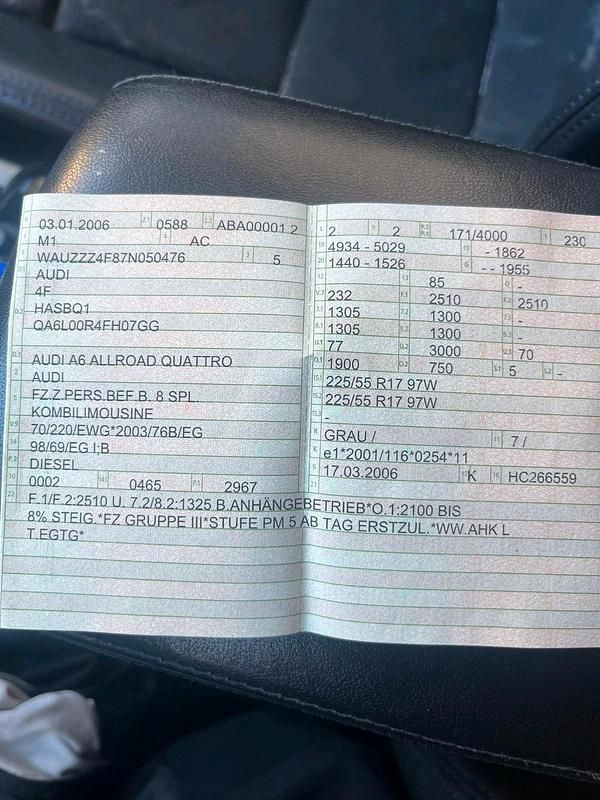 03.01.2006 0588 ABA00001 2
M1 AC
WAUZZZ4F87N050476 5
AUDI
4F
HASBQ1
QA6L00R4FH07GG
AUDI A6 ALLROAD QUATTRO
AUDI
FZ.Z.PERS.BEF.B. 8 SPL.
KOMBILIMOUSINE
70/220/EWG*2003/76B/EG
98/69/EG I;B
DIESEL
0002 0465 2967
2 2 171/4000 230
4934 - 5029 - 1862
1440 - 1526 - - 1955
85 -
232 2510 2510
1305 1300 -
1305 1300 -
77 3000 70
1900 750 5 -
225/55 R17 97W
225/55 R17 97W
-
GRAU / 7 /
e1*2001/116*0254*11
17.03.2006 K HC266559
F.1/F.2:2510 U. 7.2/8.2:1325 B.ANHÄNGEBETRIEB*O.1:2100 BIS
8% STEIG.*FZ GRUPPE III*STUFE PM 5 AB TAG ERSTZUL.*WW.AHK L
T.EGTG*